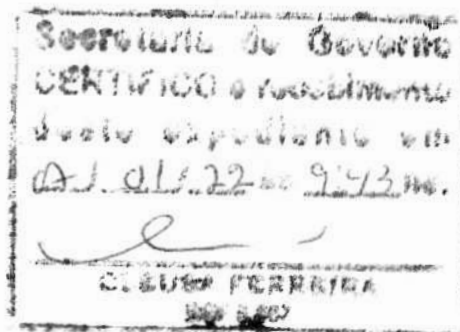 Secretaria de Governo
CERTIFICO o recebimento
deste expediente em
01.22 às 9:43 hs.
FERREIRA